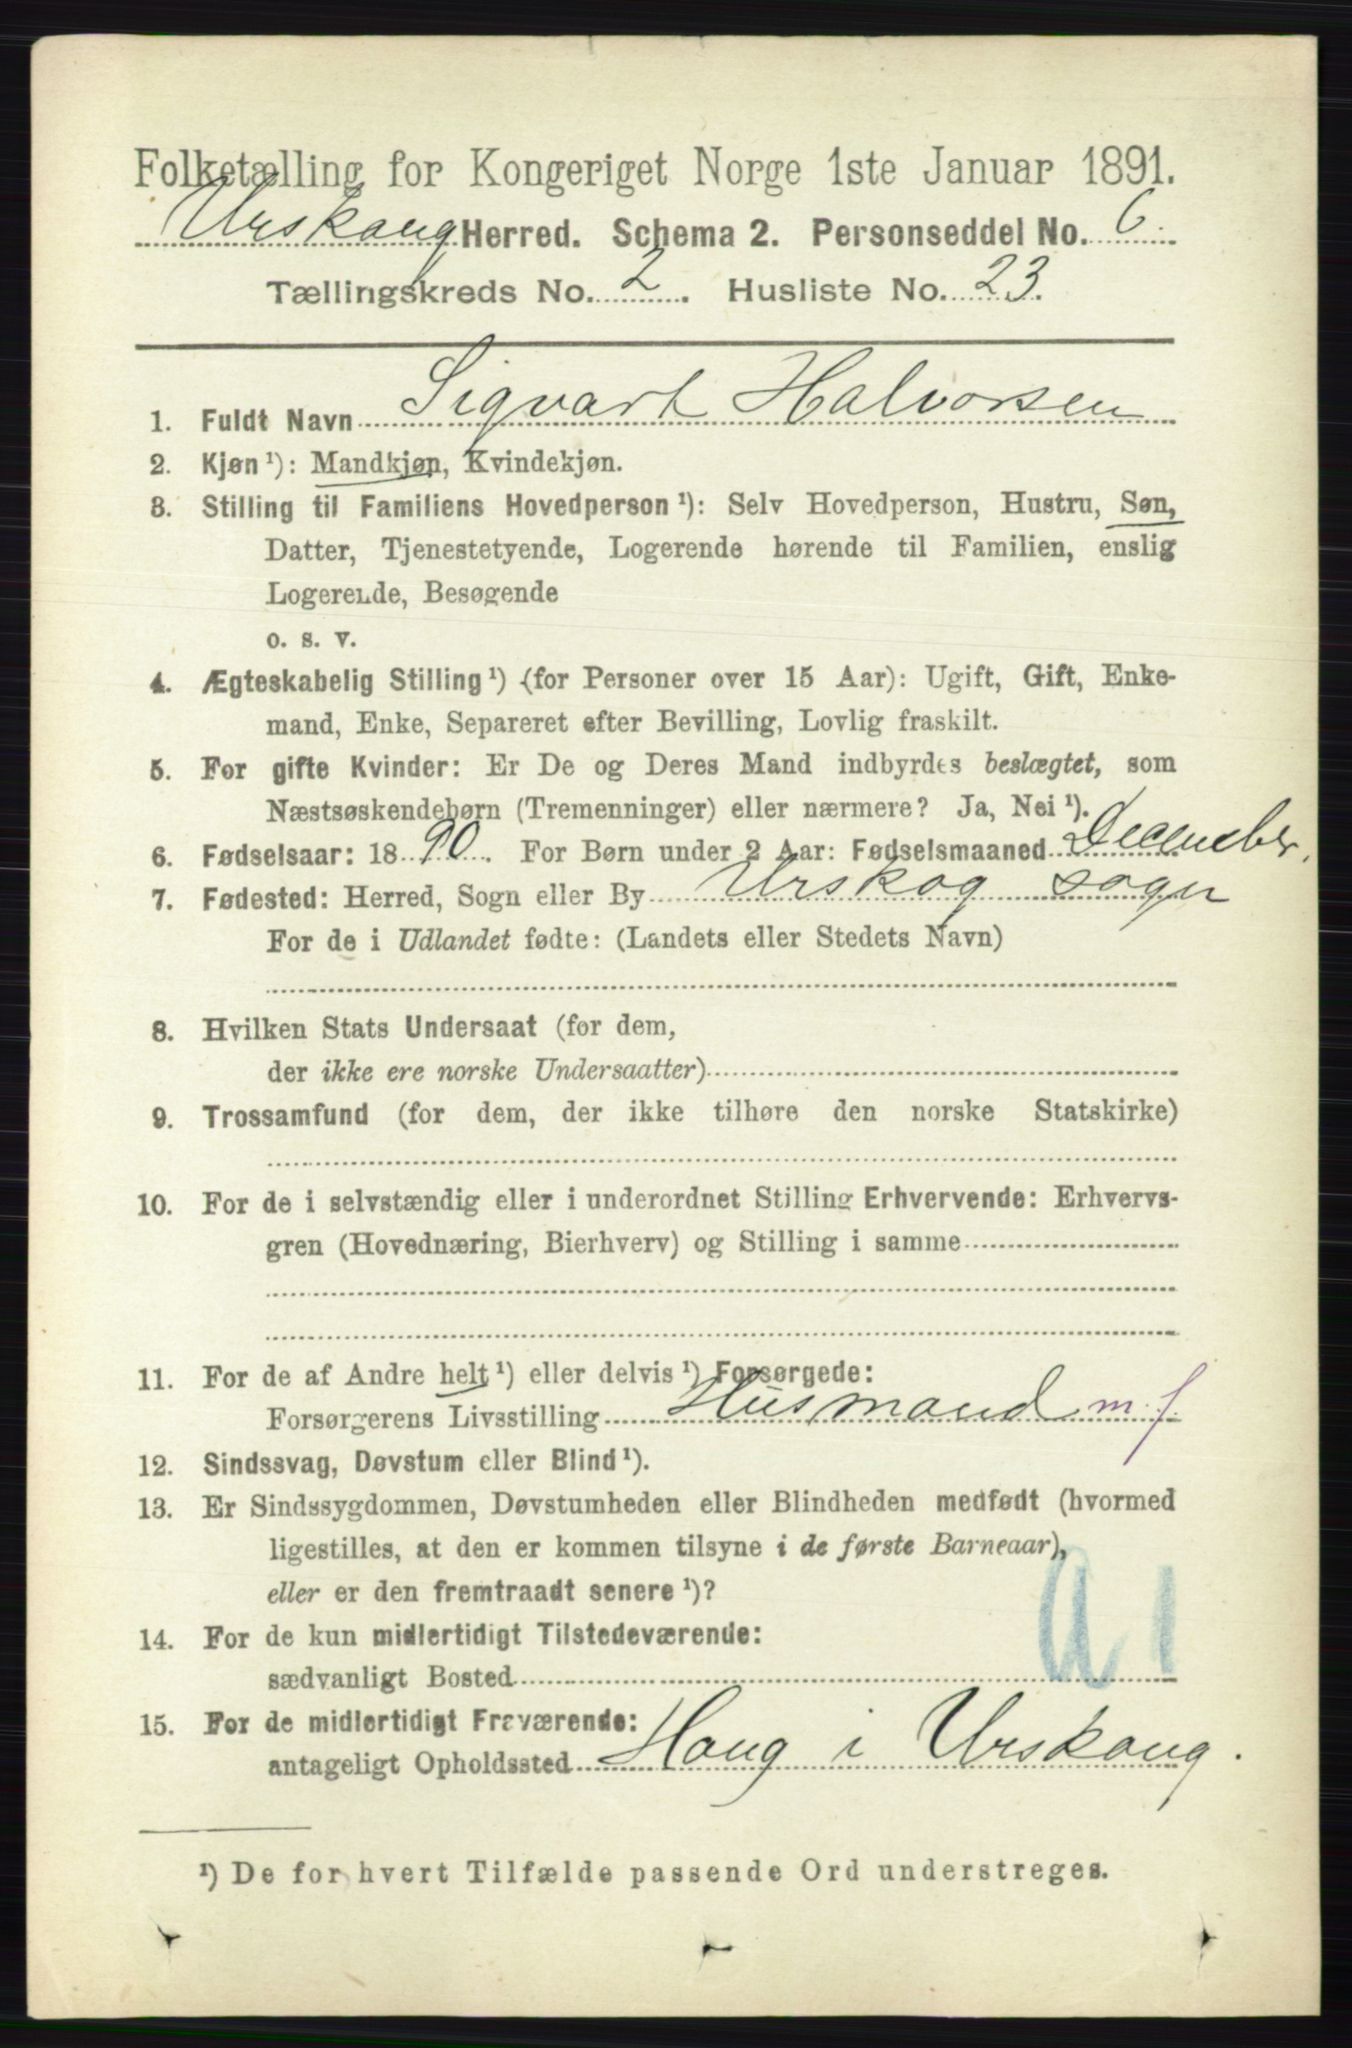 Folketælling for Kongeriget Norge 1ste Januar 1891.
Urskoug Herred. Schema 2. Personseddel No. 6
Tællingskreds No. 2. Husliste No. 23.
1. Fuldt Navn Sigvart Halvorsen
2. Kjøn ¹): Mandkjøn, Kvindekjøn.
3. Stilling til Familiens Hovedperson ¹): Selv Hovedperson, Hustru, Søn,
Datter, Tjenestetyende, Logerende hørende til Familien, enslig
Logerende, Besøgende
o. s. v.
4. Ægteskabelig Stilling ¹) (for Personer over 15 Aar): Ugift, Gift, Enke-
mand, Enke, Separeret efter Bevilling, Lovlig fraskilt.
5. For gifte Kvinder: Er De og Deres Mand indbyrdes beslægtet, som
Næstsøskendebørn (Tremenninger) eller nærmere? Ja, Nei ¹).
6. Fødselsaar: 1890. For Børn under 2 Aar: Fødselsmaaned December.
7. Fødested: Herred, Sogn eller By Urskog sogn
For de i Udlandet fødte: (Landets eller Stedets Navn)
8. Hvilken Stats Undersaat (for dem,
der ikke ere norske Undersaatter)
9. Trossamfund (for dem, der ikke tilhøre den norske Statskirke)
10. For de i selvstændig eller i underordnet Stilling Erhvervende: Erhvervs-
gren (Hovednæring, Bierhverv) og Stilling i samme
11. For de af Andre helt ¹) eller delvis ¹) Forsørgede:
Forsørgerens Livsstilling Husmand m. j.
12. Sindssvag, Døvstum eller Blind ¹).
13. Er Sindssygdommen, Døvstumheden eller Blindheden medfødt (hvormed
ligestilles, at den er kommen tilsyne i de første Barneaar),
eller er den fremtraadt senere ¹)?
a 1
14. For de kun midlertidigt Tilstedeværende:
sædvanligt Bosted
15. For de midlertidigt Fraværende:
antageligt Opholdssted Houg i Urskoug.
¹) De for hvert Tilfælde passende Ord understreges.